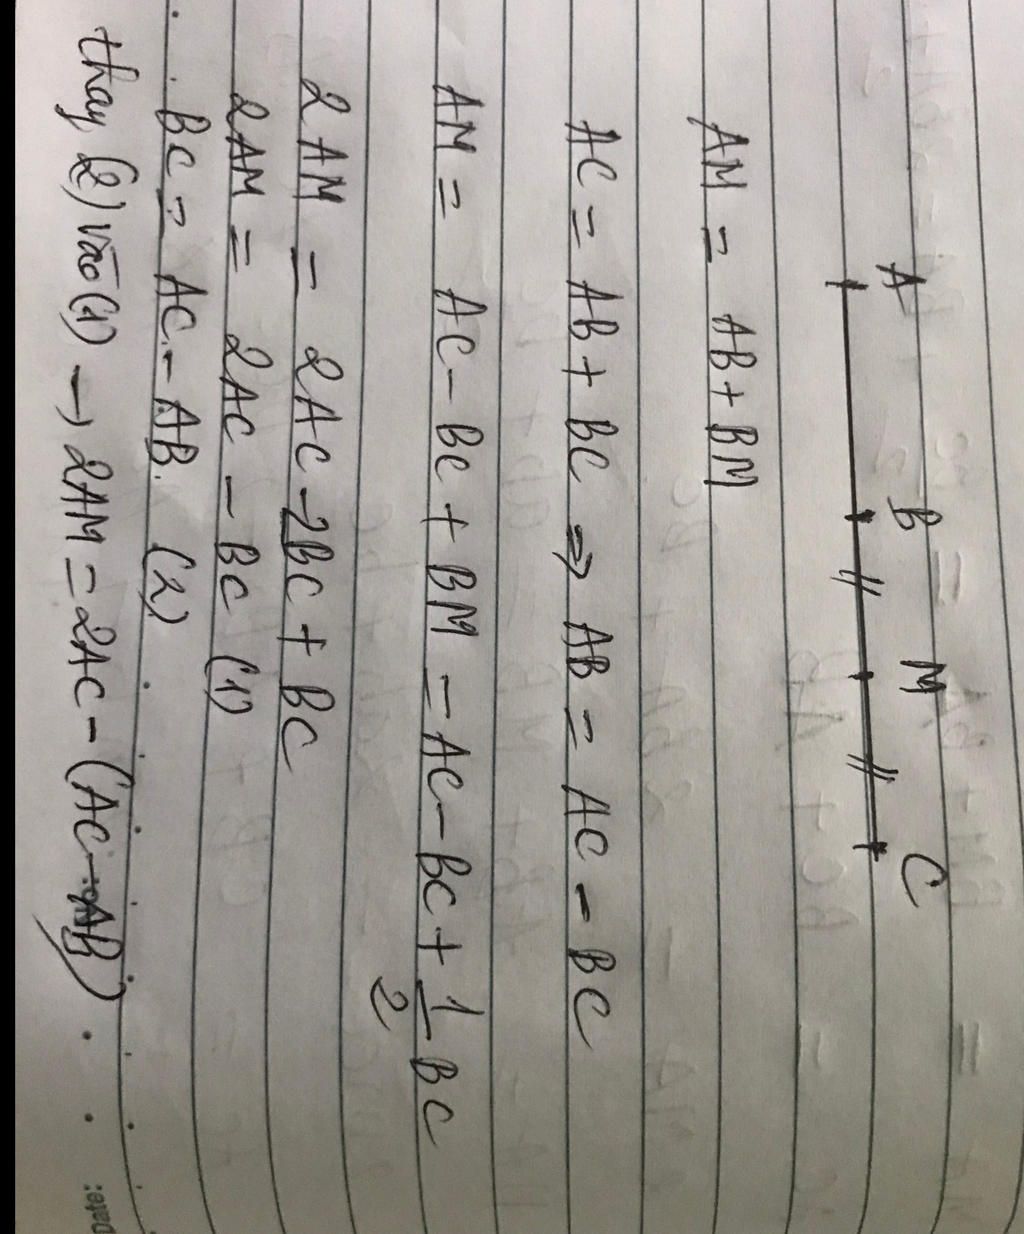 A B M C
AM = AB + BM
AC = AB + BC ⇒ AB = AC - BC
AM = AC - BC + BM = AC - BC + 1/2 BC
2AM = 2AC - 2BC + BC
2AM = 2AC - BC (1)
BC = AC - AB. (2)
thay (2) vào (1) → 2AM = 2AC - (AC - AB)
Date: